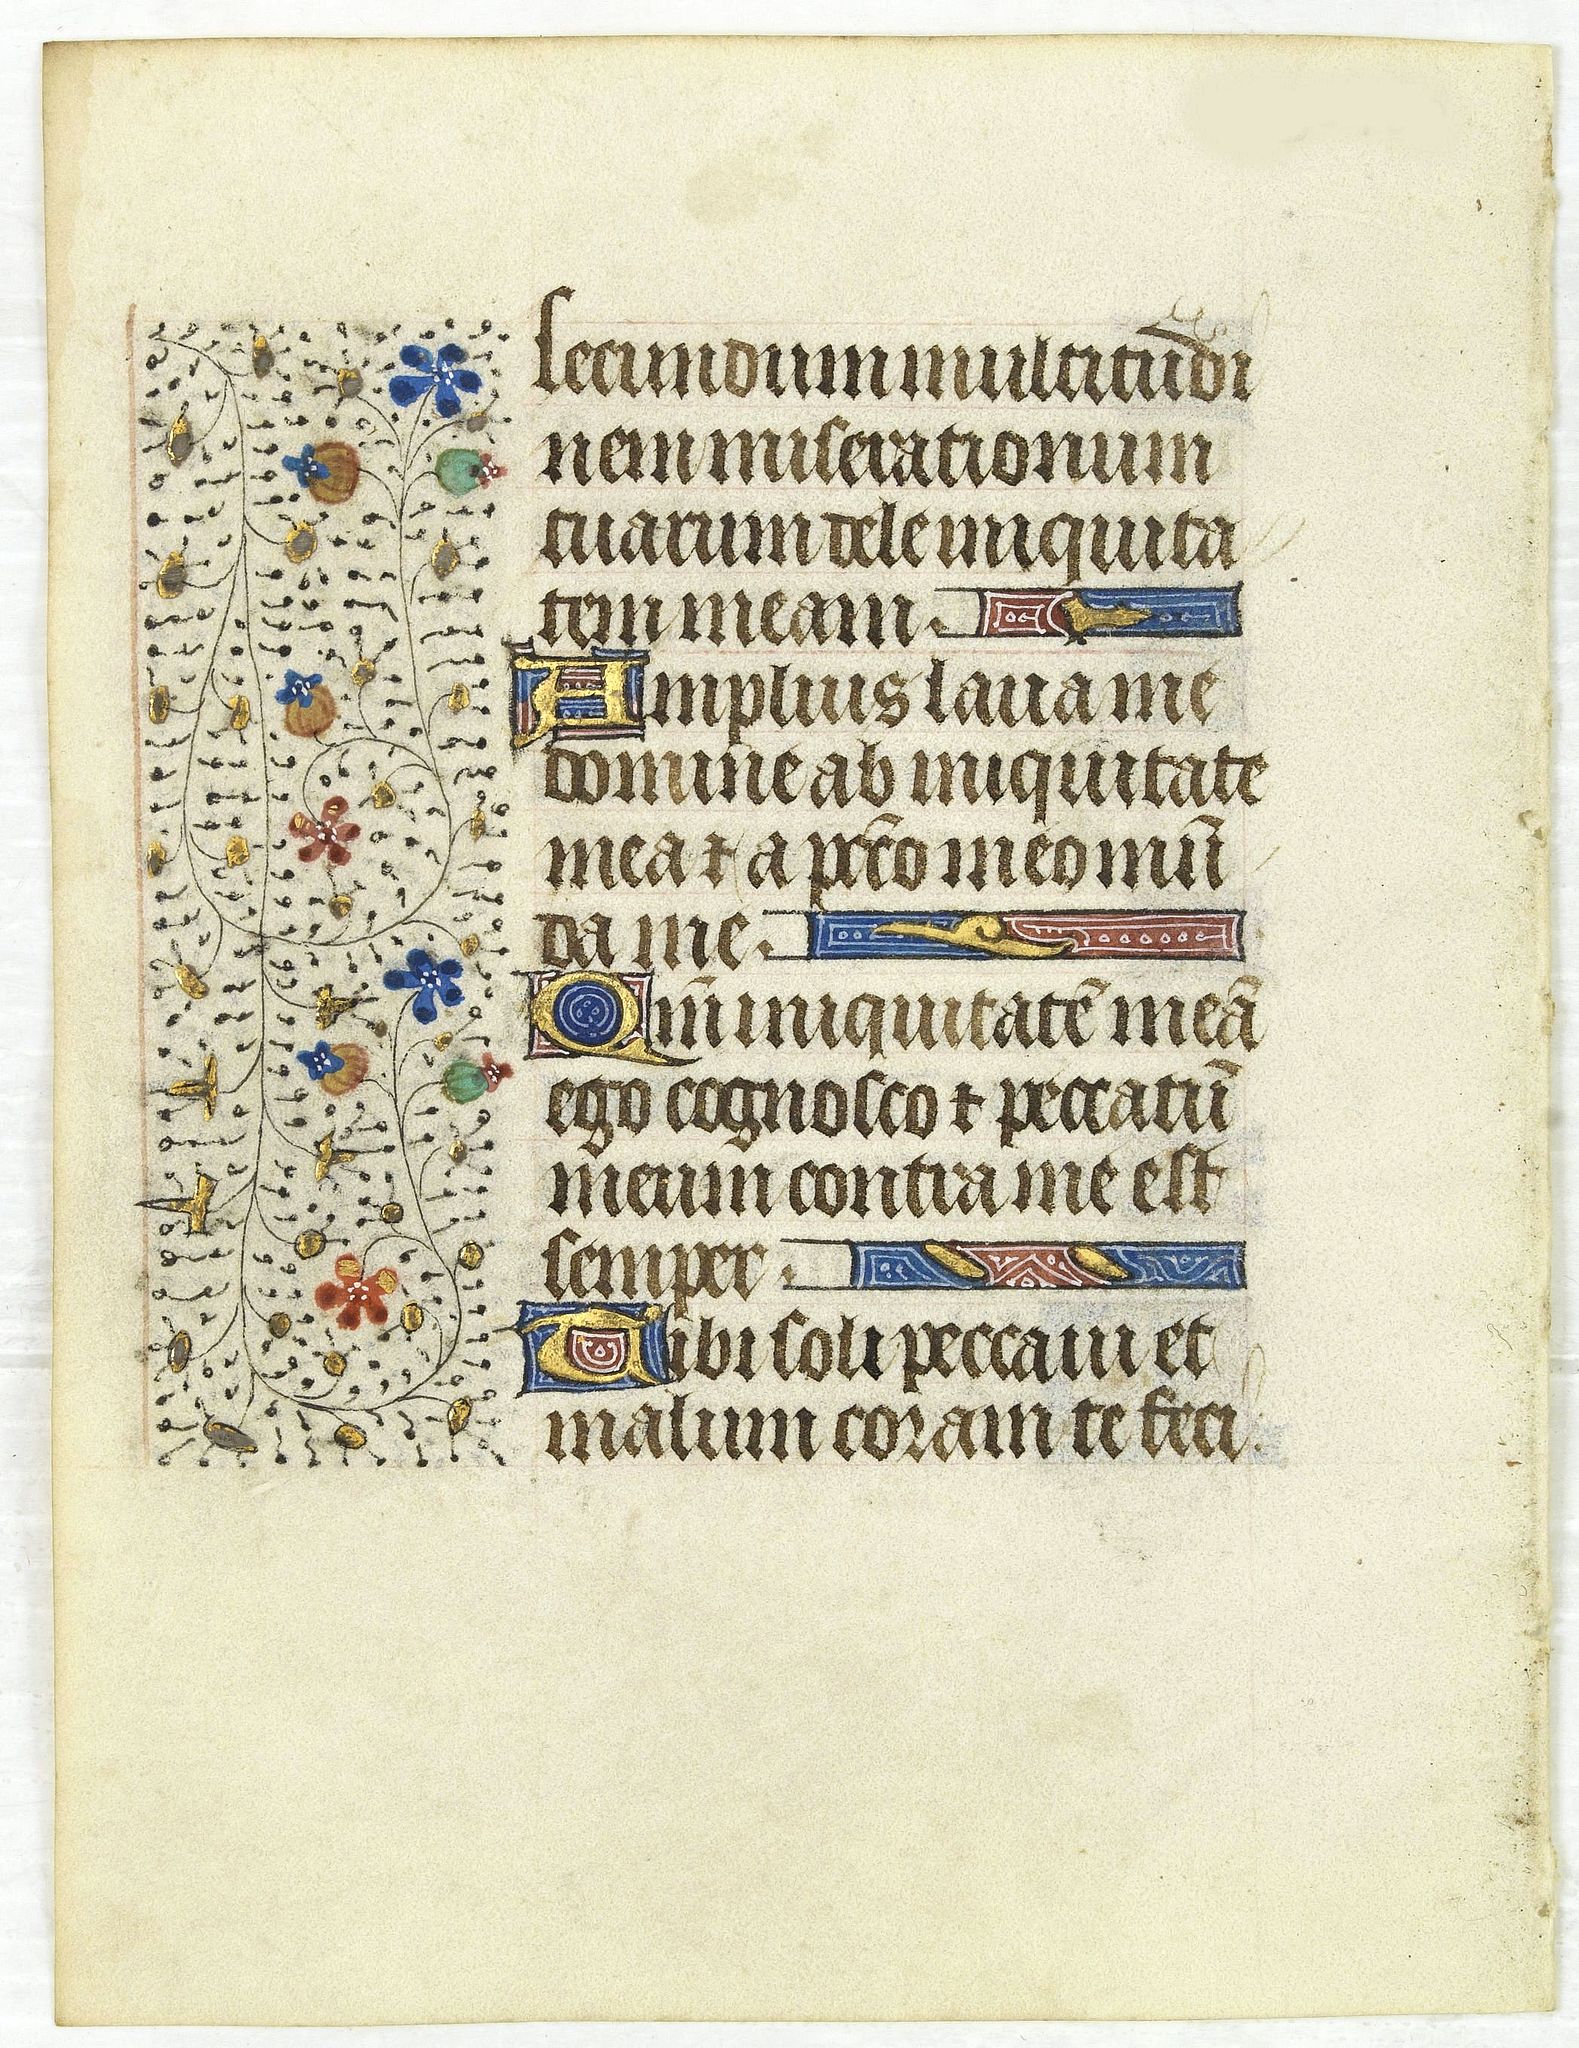 secundum multitudi
nem miserationum
tuarum dele iniquita
tem meam.
Amplius laua me
domine ab iniquitate
mea ⁊ a pc̄co meo mū
da me.
Qm̄ iniquitatē meā
ego cognosco ⁊ peccatū
meum contra me est
semper.
Tibi soli peccaui et
malum coram te feci.